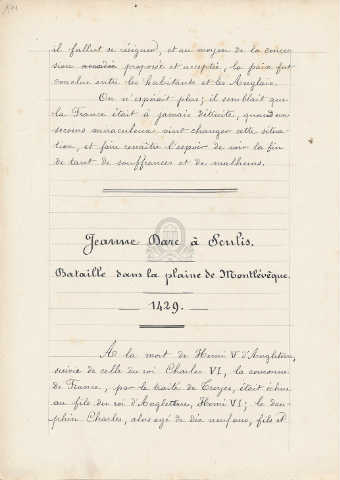 il fallut se résigner, et au moyen de la conces-
sion proposée et acceptée, la paix fut
conclue entre les habitants et les Anglais.
On n'espérait plus; il semblait que
la France était à jamais détruite, quand un
secours miraculeux vint changer cette situa-
tion, et faire renaître l'espoir de voir la fin
de tant de souffrances et de malheurs.
Jeanne Darc à Senlis.
Bataille dans la plaine de Montlévêque.
1429.
A la mort de Henri V d'Angleterre,
suivie de celle du roi Charles VI, la couronne
de France, par le traité de Troyes, était échue
au fils du roi d'Angleterre, Henri VI; le dau-
phin Charles, alors agé de dix neuf ans, fils et